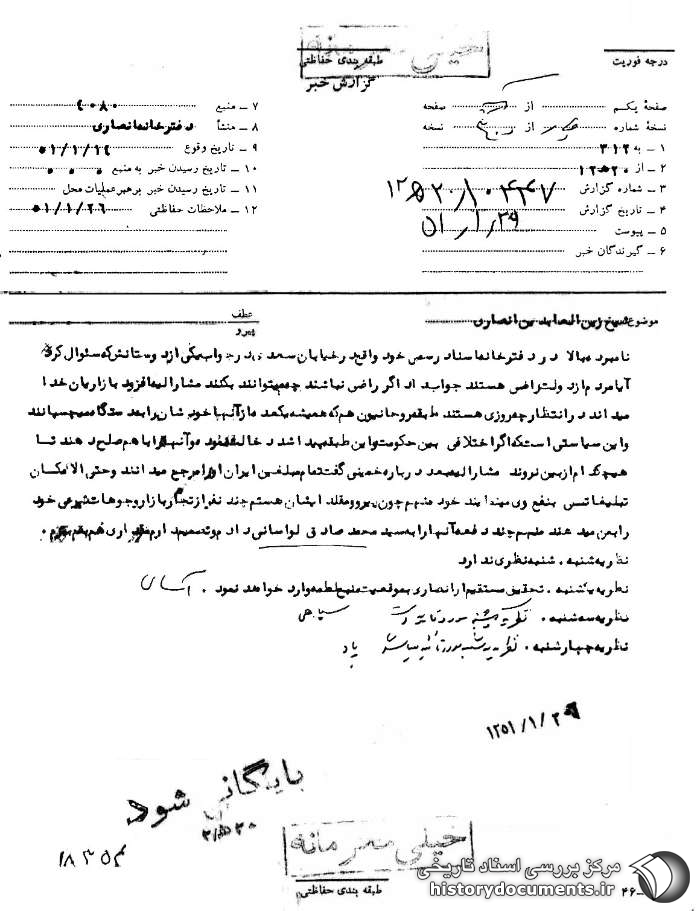 خیلی محرمانه
درجه فوریت
طبقه بندی حفاظتی
گزارش خبر
صفحهٔ یکم از صفحه
نسخهٔ شماره از نسخه
۱ – به ۳۱۲
۲ – از ۱۲۵۲۰
۳ – شماره گزارش
۴ – تاریخ گزارش ۲۹/۱/۵۱
۵ – پیوست
۶ – گیرندگان خبر
۷ – منبع
۸ – منشأ دفترخانه انصاری
۹ – تاریخ وقوع
۱۰ – تاریخ رسیدن خبر به منبع
۱۱ – تاریخ رسیدن خبر برهبر عملیات محل
۱۲ – ملاحظات حفاظتی ۵۱/۱/۲۶
موضوع شیخ زین العابدین انصاری
عطف
پیرو
نامبرده بالا در دفترخانه اسناد رسمی خود واقع در خیابان سعدی در جواب یکی از دوستانش که سئوال کرد
آیا مردم از دولت راضی هستند جواب داد اگر راضی نباشند چه میتوانند بکنند مشارالیه افزود بازاریان خدا
میداند در انتظار چه روزی هستند. طبقه روحانیون هم که همیشه یکعده از آنها خودشان را بدستگاه میچسبانند
و این سیاستی است که اگر اختلافی بین حکومت و این طبقه پیدا شد دخالت نموده و آنها را با هم صلح دهند تا
هیچکدام از بین نروند. مشارالیه بعد درباره خمینی گفت تمام مبلغین ایران او را مرجع میدانند و حتی الامکان
تبلیغاتی بنفع وی مینمایند خود منهم چون پیرو و مقلد ایشان هستم چند نفر از تجار بازار وجوهات شرعی خود
را بمن میدهند منهم چند دفعه آنها را به سید محمد صادق لواسانی دادم و تصمیم دارم
نظریه شنبه. شنبه نظری ندارد
نظریه یکشنبه. تحقیق مستقیم از انصاری بموقعیت منبع لطمه وارد خواهد نمود.
نظریه سه شنبه.
نظریه چهارشنبه.
۱۳۵۱/۱/۲۹
بایگانی شود
خیلی محرمانه
طبقه بندی حفاظتی
مرکز بررسی اسناد تاریخی
historydocuments.ir